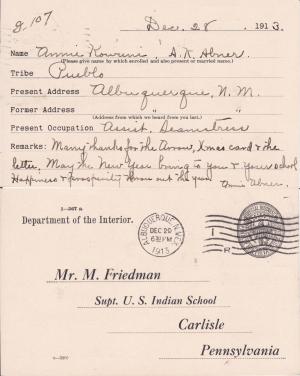 g. 107
Dec. 28, 1913.
Name Annie Kowuni, A. K. Abner.
(Please give name by which enrolled and also present or married name.)
Tribe Pueblo
Present Address Albuquerque, N. M.
Former Address " "
(Address from which we heard from you last.)
Present Occupation Assist. Seamstress
Remarks: Many thanks for the Arrow, Xmas card & the
letter. May the New Year bring to you & your school
Happiness & prosperity thru out the year.
Annie Abner.
5—367 a
Department of the Interior.
ALBUQUERQUE, N. MEX.
DEC 29
6 PM
1913
Mr. M. Friedman
Supt. U. S. Indian School
Carlisle
Pennsylvania